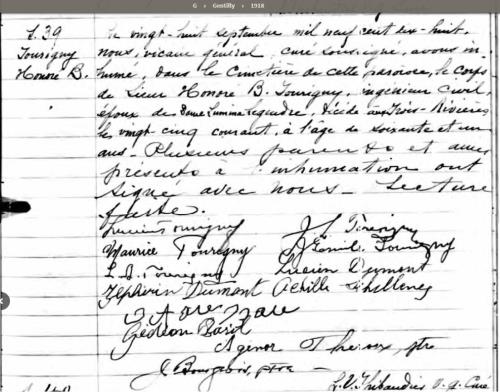 G › Gentilly › 1918
S. 39
Tourigny
Honoré B.
Le vingt-huit septembre mil neuf cent dix-huit,
nous, vicaire général, curé soussigné, avons in-
humé, dans le cimetière de cette paroisse, le corps
de Sieur Honoré B. Tourigny, ingénieur civil,
époux de Dame Lumina Legendre, décédé aux Trois-Rivières
le vingt-cinq courant, à l'âge de soixante et un
ans. Plusieurs parents et amis
présents à l'inhumation ont
signé avec nous. Lecture
faite.
Lucien Tourigny
Maurice Tourigny
Tourigny
Lucien Dumont
Zéphirin Dumont Achille
Gédéon Baril
Agenor ptre
J. Bourgeois, ptre